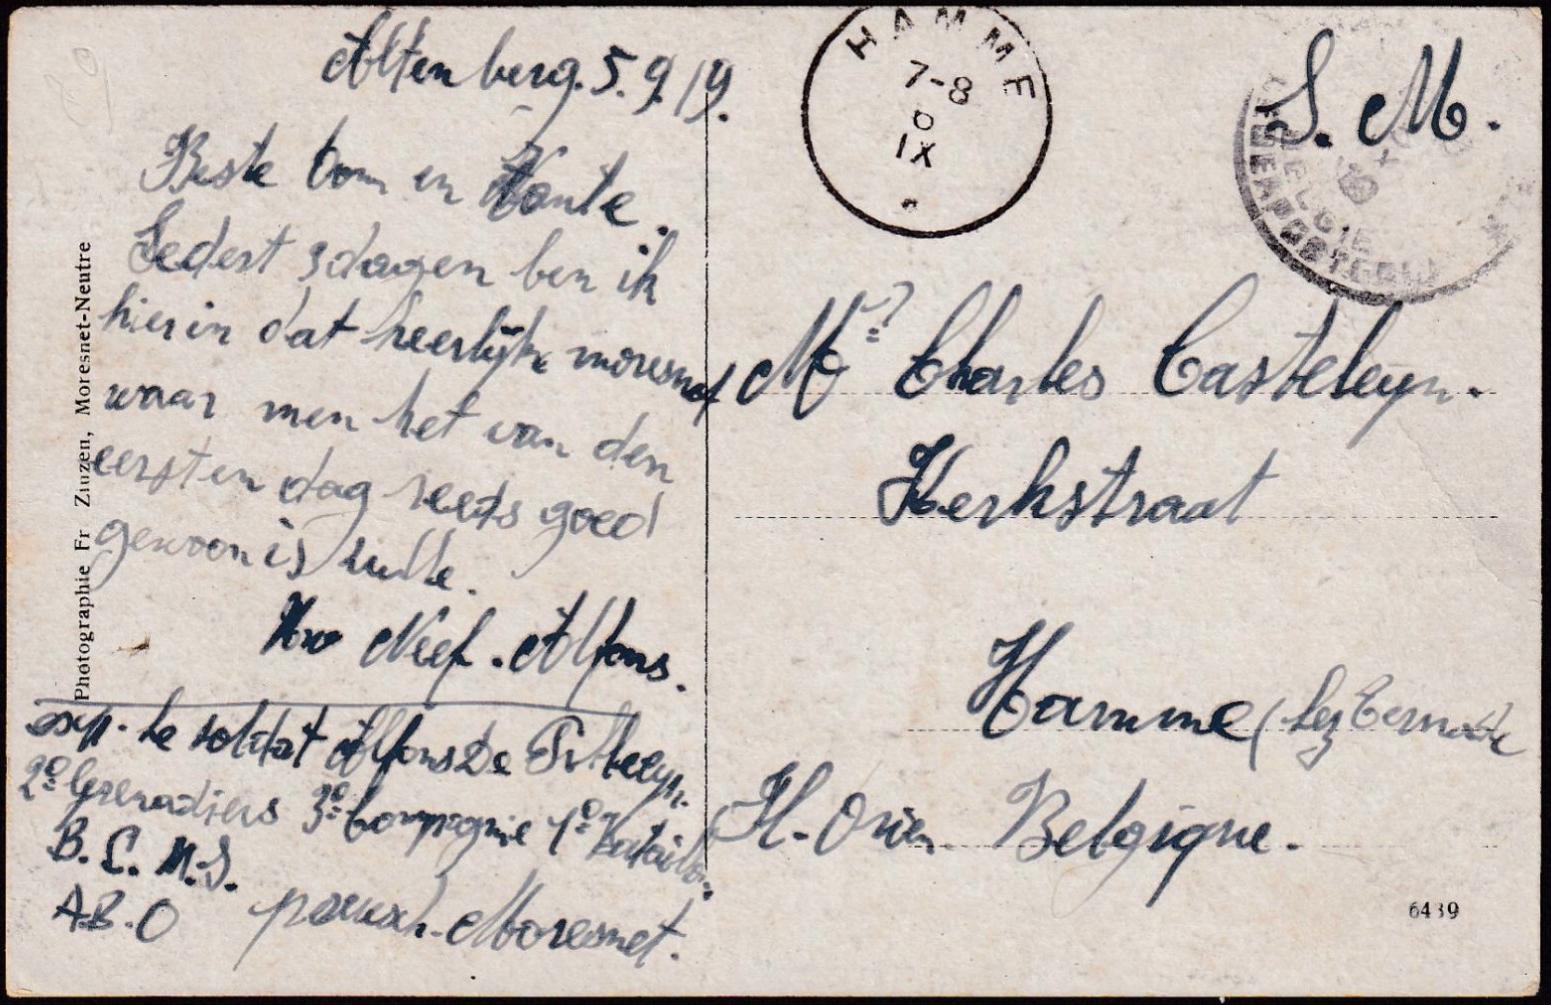 Altenberg. 5.9.19.
Beste Oom en Tante.
Sedert 3 dagen ben ik
hier in dat heerlijk moresnet
waar men het van den
eersten dag reeds goed
gewoon is
Uw Neef. Alfons.
exp. le soldat Alfons De
2e Grenadiers 3e Compagnie 1e Bataillon.
B.C.M.S.
A.B.O Moresnet.
Photographie Fr Ziuzen, Moresnet-Neutre
HAMME
7-8
6
IX
S. M.
BELGIE
Mr Charles Casteleyn.
Kerkstraat
Hamme (lez Termonde
Belgique.
6439